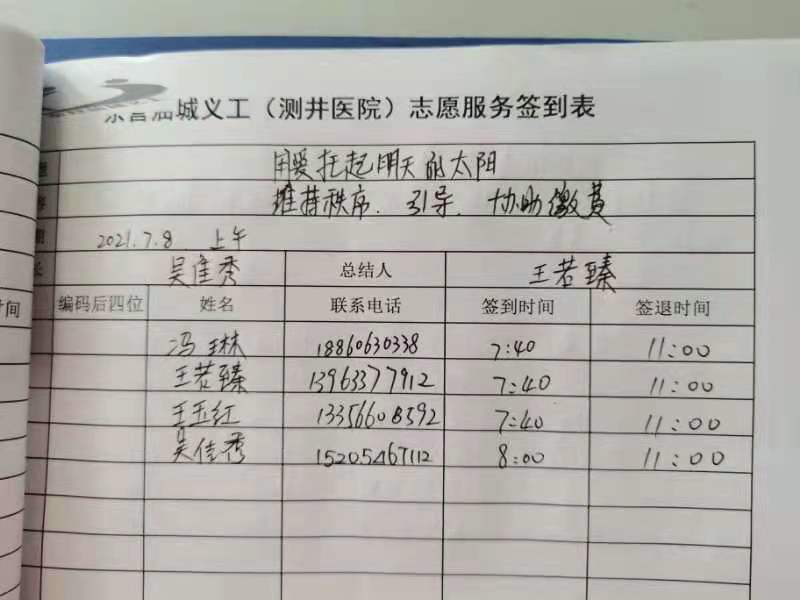 东营油城义工（测井医院）志愿服务签到表
用爱托起明天的太阳
维持秩序、引导、协助缴费
2021.7.8 上午
长 吴佳秀 总结人 王若臻
时间 编码后四位 姓名 联系电话 签到时间 签退时间
冯琳 18860630338 7:40 11:00
王若臻 13963377912 7:40 11:00
王玉红 13356608592 7:40 11:00
吴佳秀 15205467112 8:00 11:00